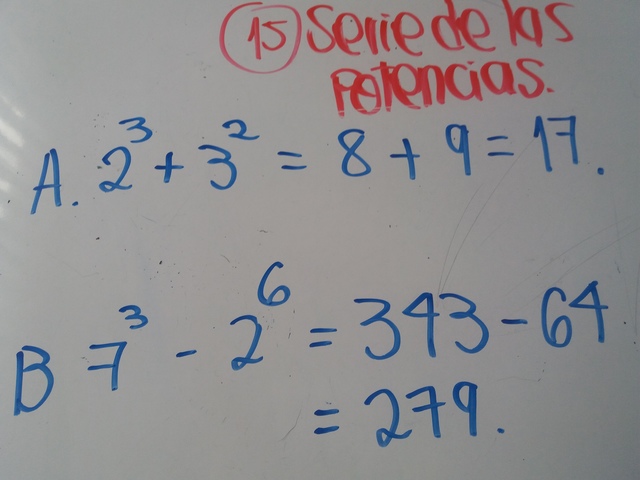 15 Serie de las
Potencias.
A. 2³ + 3² = 8 + 9 = 17.
B 7³ - 2⁶ = 343 - 64
= 279.